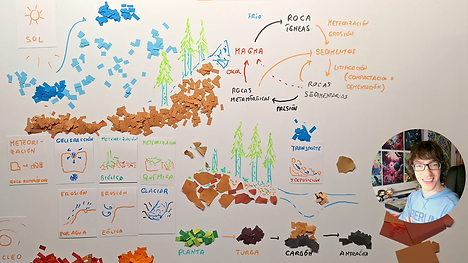 SOL
FRÍO
ROCA
ÍGNEAS
METEORIZACIÓN
EROSIÓN
MAGMA
SEDIMENTOS
CALOR
LITIFICACIÓN
(COMPACTACIÓN O
CEMENTACIÓN)
ROCAS
METAMÓRFICAS
ROCAS
SEDIMENTARIAS
PRESIÓN
METEORI-
ZACIÓN
GELIFRACCIÓN
METEORIZACIÓN
BIOLÓGICA
METEORIZACIÓN
QUÍMICA
TRANSPORTE
EROSIÓN
POR AGUA
EROSIÓN
EÓLICA
GLACIAR
PLANTA
TURBA
CARBÓN
ANTRACITA